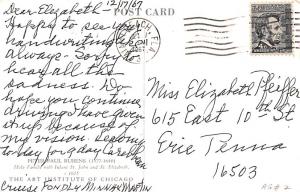 12/17/69
POST CARD
Dear Elizabeth
Happy to see your
handwriting
Always - Sorry to
hear all the
sadness. Do
hope you continue
driving. I have given
it up because of
my vision. Looking
PETER PAUL RUBENS (1577-1640)
Holy Family with Infant St. John and St. Elizabeth
THE ART INSTITUTE OF CHICAGO
Fondly Minna Martin
Miss Elizabeth Pfeiffer
615 East 10th St
Erie Penna
16503